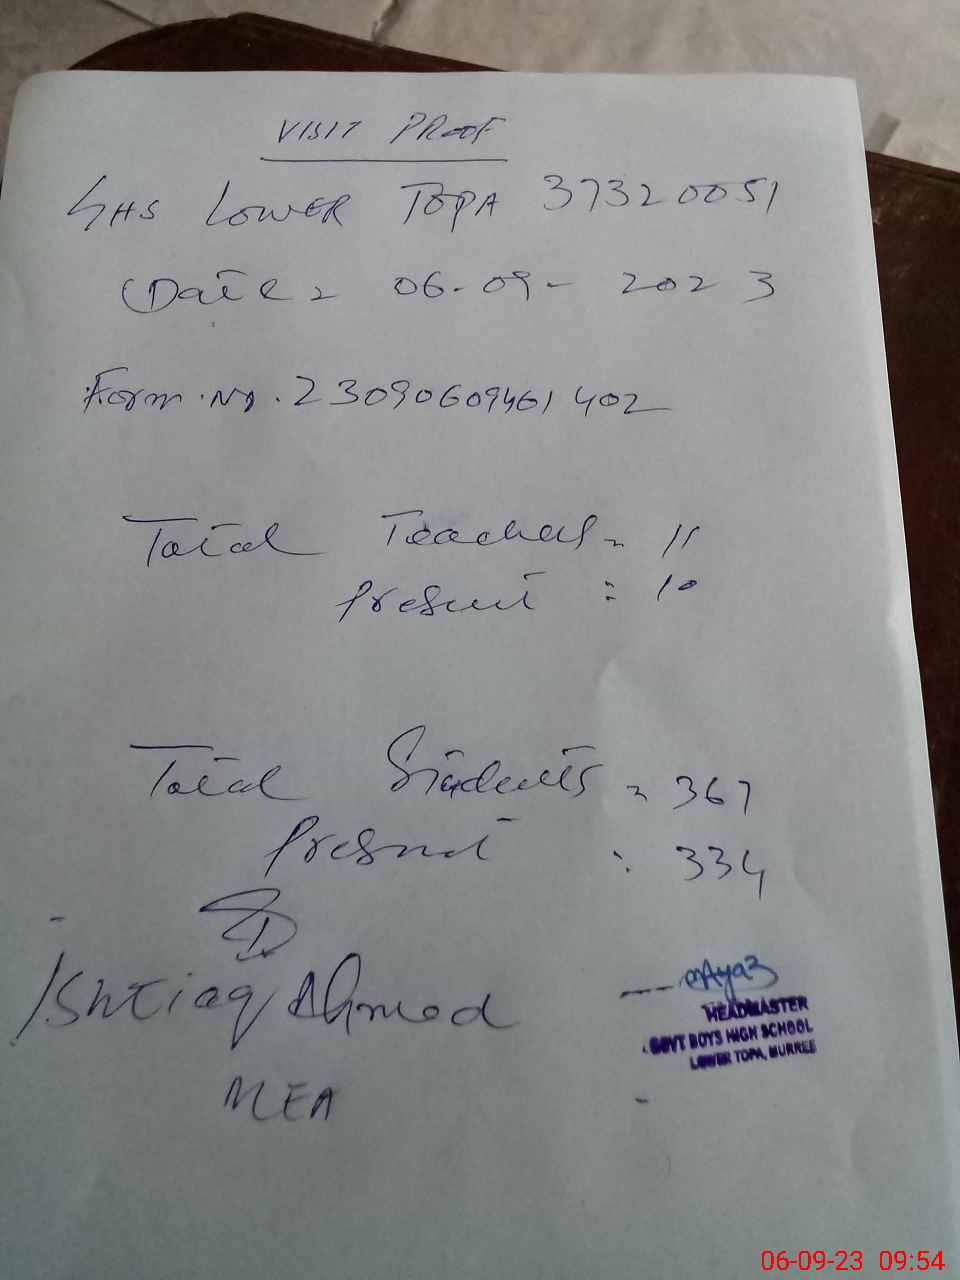 VISIT PROOF
GHS LOWER TOPA 37320051
Date = 06-09-2023
Form.No.23090609461402
Total Teachers = 11
Present : 10
Total Students = 367
Present : 334
Ishtiaq Ahmed
MEA
Ayaz
HEADMASTER
GOVT BOYS HIGH SCHOOL
LOWER TOPA, MURREE
06-09-23 09:54